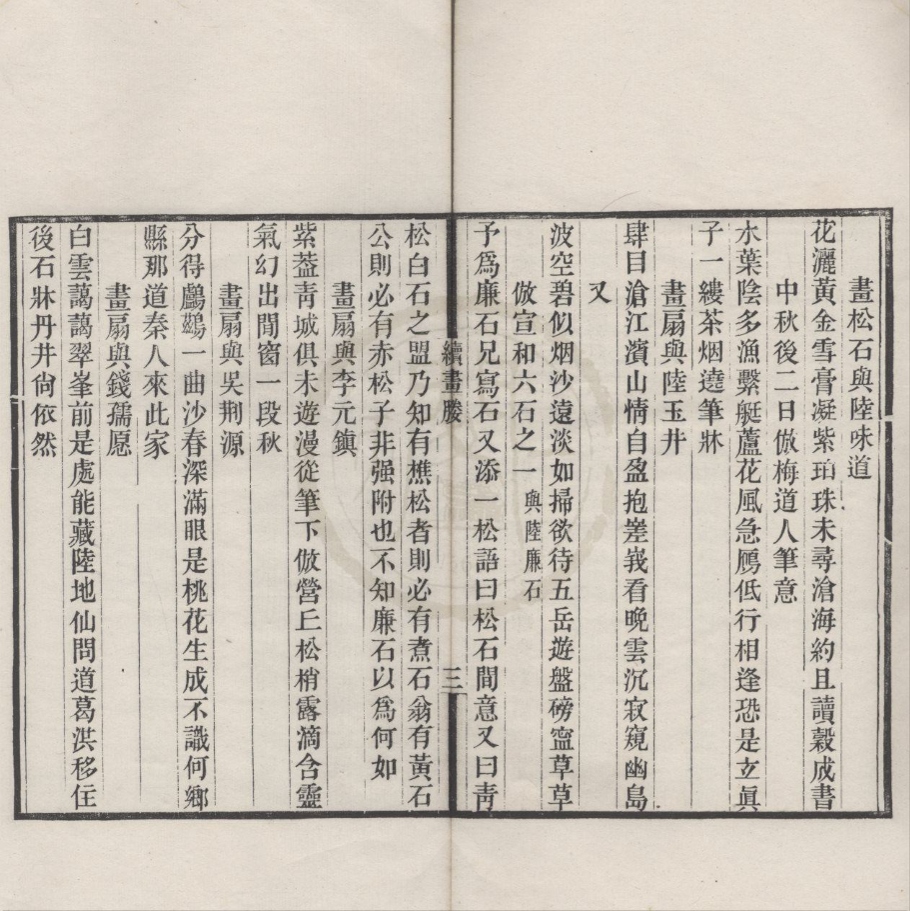 畫松石與陸味道
花灑黃金雪膏凝紫珀珠未尋滄海約且讀穀成書
中秋後二日倣梅道人筆意
水葉陰多漁繫艇蘆花風急鴈低行相逢恐是立眞
子一縷茶烟遶筆牀
畫扇與陸玉井
肆目滄江濵山情自盈抱嵳峩看晚雲沉寂窺幽島
又
波空碧似烟沙遠淡如掃欲待五岳遊盤磅寍草草
倣宣和六石之一與陸廉石
予爲廉石兄寫石又添一松語曰松石間意又曰靑
續畫媵 三
松白石之盟乃知有樵松者則必有煑石翁有黃石
公則必有赤松子非强附也不知廉石以爲何如
畫扇與李元鎭
紫葢靑城俱未遊漫從筆下倣營丘松梢露滴含靈
氣幻出閒窗一段秋
畫扇與吴荆源
分得鸕鷀一曲沙春深滿眼是桃花生成不識何鄉
縣那道秦人來此家
畫扇與錢孺愿
白雲藹藹翠峯前是處能藏陸地仙問道葛洪移住
後石牀丹井尙依然